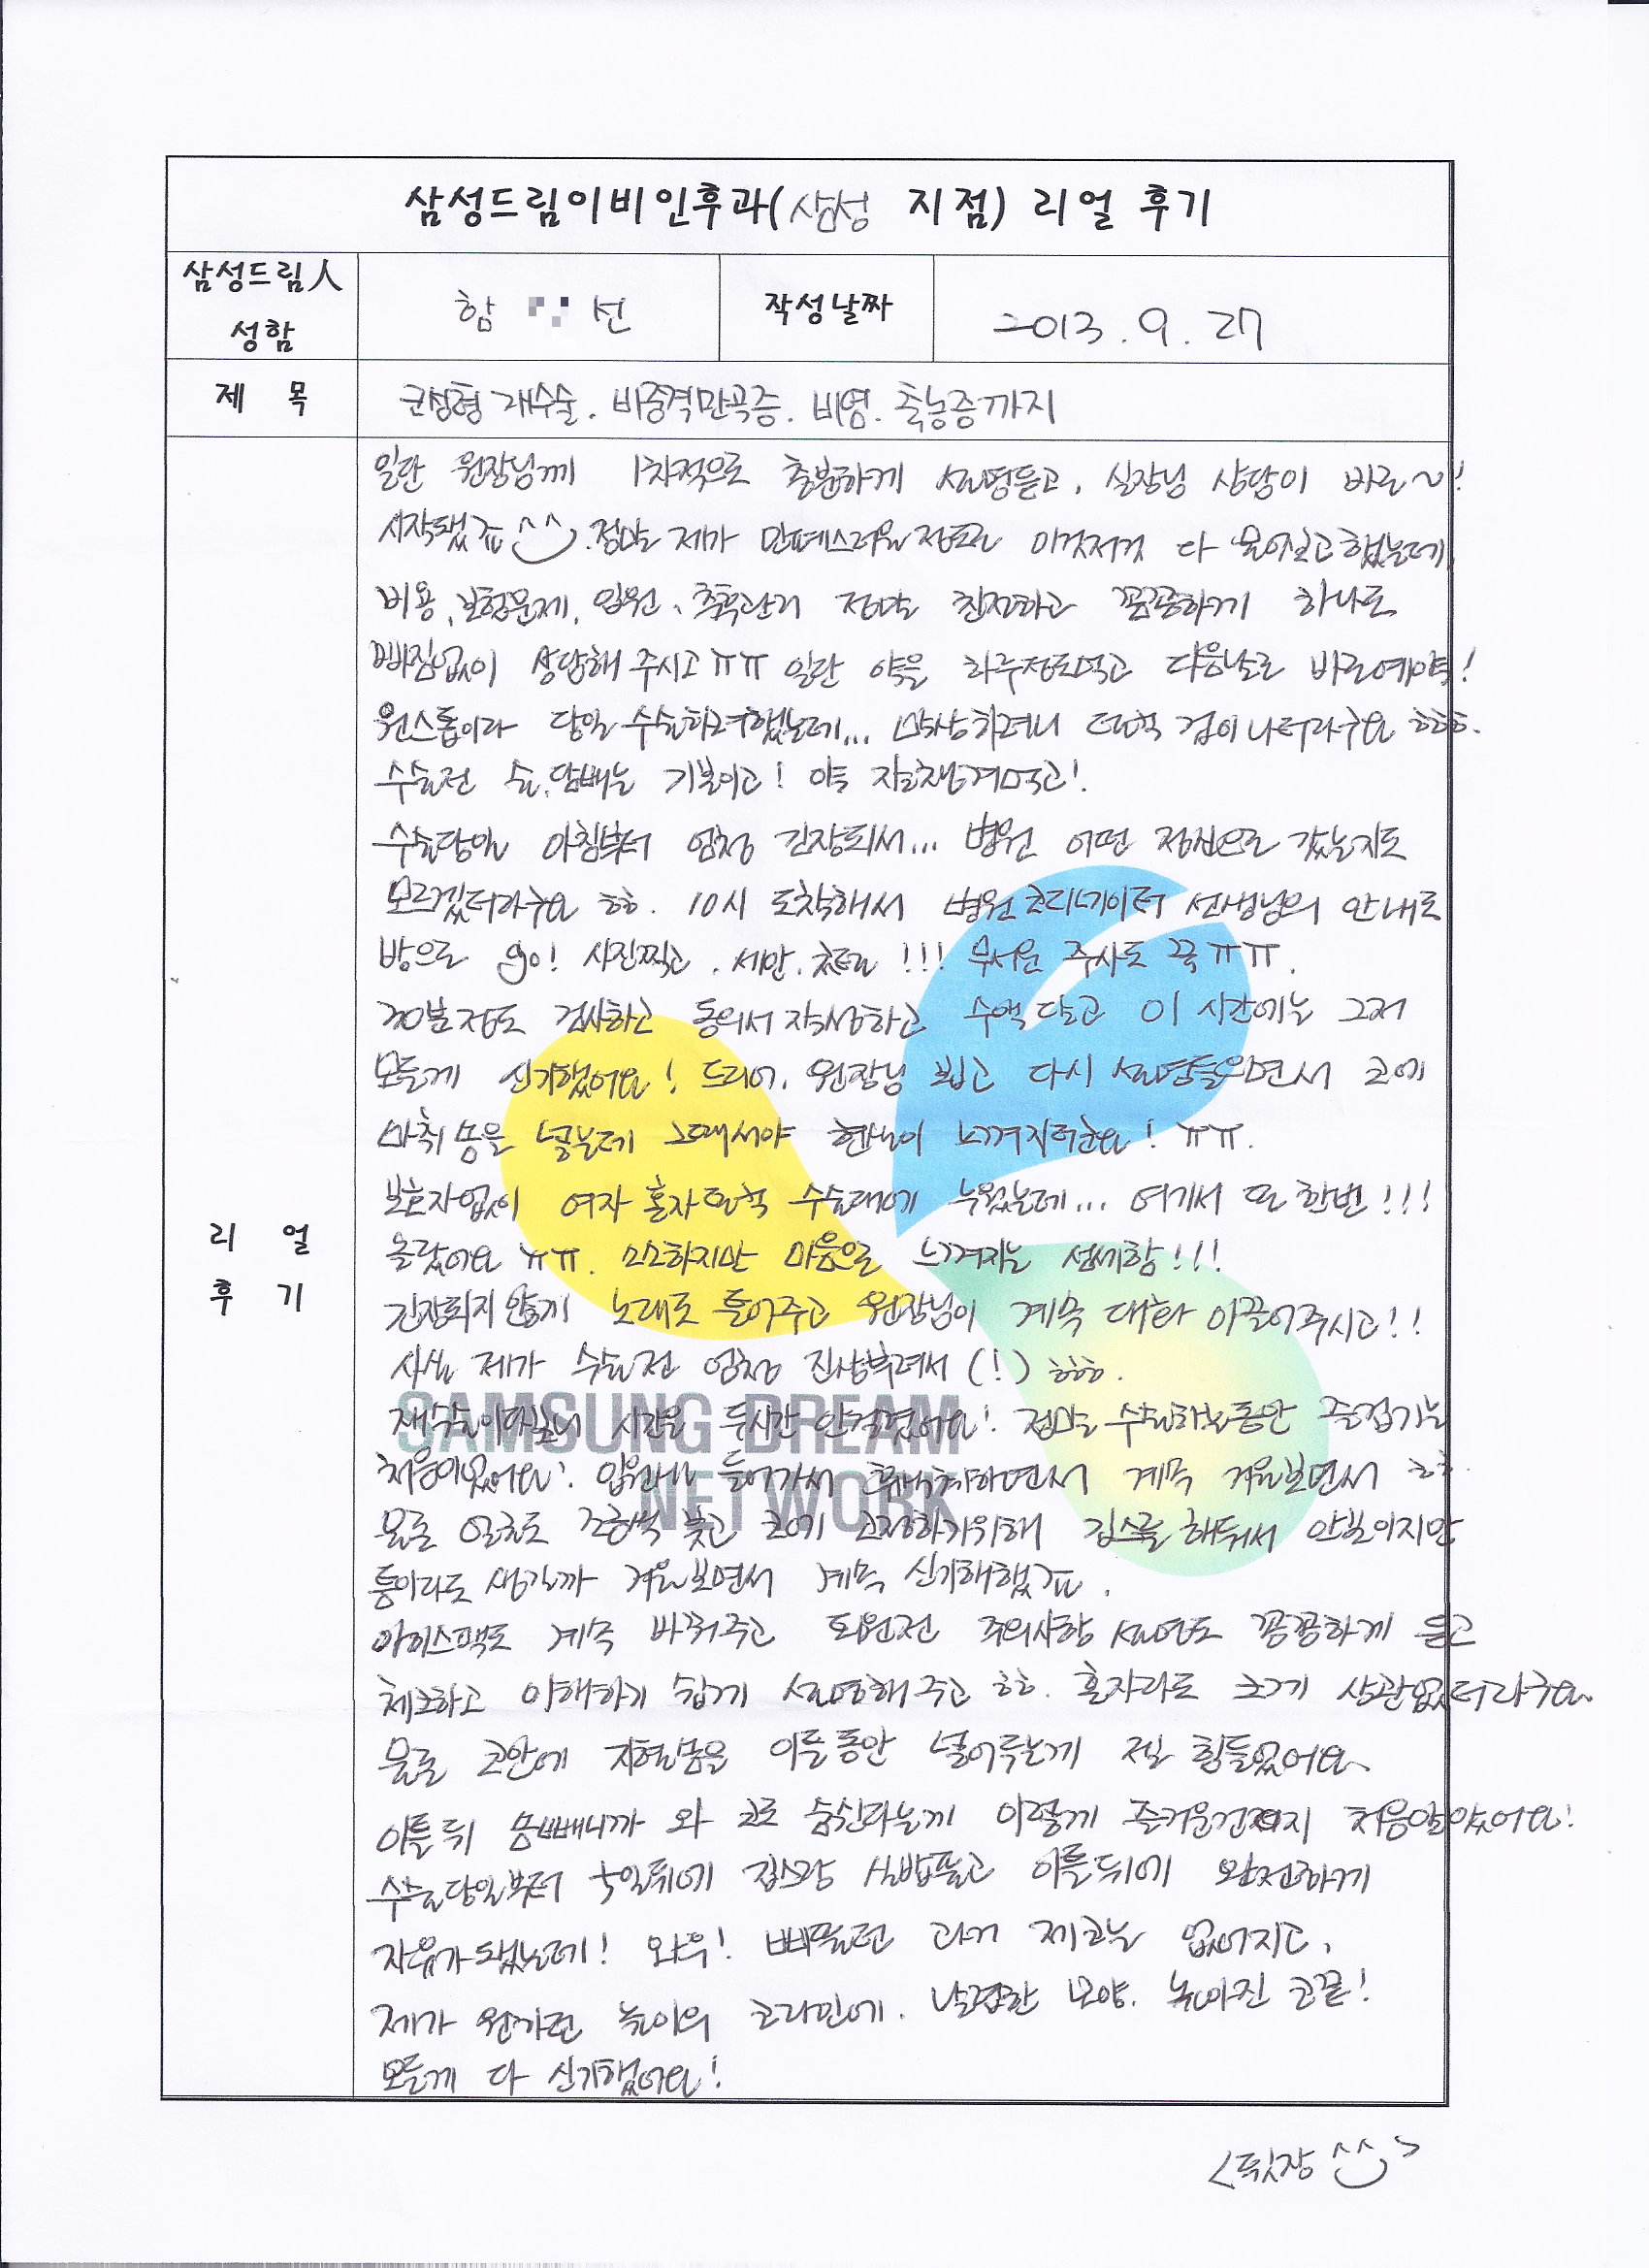 삼성드림이비인후과(삼성 지점) 리얼 후기
삼성드림人
성함
함 선
작성날짜
2013. 9. 27
제 목
코성형 재수술. 비중격만곡증. 비염. 축농증까지
일단 원장님께 1차적으로 충분하게 설명듣고, 실장님 상담이 바로~!!
시작됐죠 ^^ . 정말 제가 민폐스러울정도로 이것저것 다 물어보고했는데
비용, 보험문제, 입원, 추후관리 정말 친절하고 꼼꼼하게 하나도
빠짐없이 상담해 주시고ㅠㅠ 일단 약을 하루정도먹고 다음날로 바로예약!
원스톱이라 당일 수술하려했는데... 막상하려니 덜컥 겁이 나더라구요 ㅎㅎㅎ.
수술전 술,담배는 기본이고! 약 잘챙겨먹고!
수술당일 아침부터 엄청 긴장되서... 병원 어떤 정신으로 갔는지도
모르겠더라구요 ㅎㅎ. 10시 도착해서 병원 코디네이터 선생님의 안내로
방으로 go! 사진찍고. 세안. 환복!!! 무서운 주사도 꾹ㅠㅠ.
30분정도 검사하고 동의서 작성하고 수액 달고 이 시간에는 그저
모든게 신기했어요! 드디어, 원장님 뵙고 다시 설명들으면서 코에
마취솜을 넣는데 그때서야 현실이 느껴지더군요! ㅠㅠ.
보호자없이 여자 혼자덜컥 수술대에 누웠는데... 여기서 또 한번!!!
울랐어요 ㅠㅠ. 소소하지만 마음으로 느껴지는 섬세함!!!
긴장되지 않게 노래도 틀어주고 원장님이 계속 대화 이끌어주시고!!
사실 제가 수술전 엄청 진상부려서 (!) ㅎㅎㅎ.
재수술이다보니 시간은 두시간 안걸렸어요! 정말 수술하는동안 즐겁기는
처음이였어요! 입원실 들어가서 휴식취하면서 계속 거울보면서 ㅎㅎ.
물론 얼굴도 붓고 코에 고정하기위해 깁스를 해둬서 안보이지만
틈이라도 생길까 거울보면서 계속 신기해했죠.
아이스팩도 계속 바꿔주고 퇴원전 주의사항 설명도 꼼꼼하게 듣고
체크하고 이해하기 쉽게 설명해주고 ㅎㅎ. 혼자라도 크게 상관없더라구요
물론 코안에 지혈솜을 이틀동안 넣어두는게 제일 힘들었어요
이틀뒤 솜빼니까 와 코로 숨쉰다는게 이렇게 즐거운건지 처음알았어요!
수술당일부터 5일뒤에 깁스랑 실밥풀고 이틀뒤에 완전하게
자유가됐는데! 와우! 삐뚤던 과거 제코는 없어지고,
제가 원하던 높이의 코라인에. 날렵한 모양. 높아진 코끝!
모든게 다 신기했어요!
리 얼
후 기
SAMSUNG DREAM
NETWORK
<뒷장 ^^>